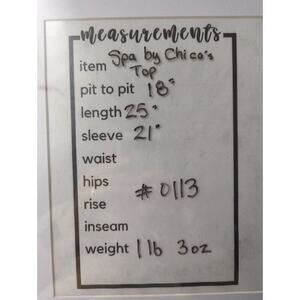 measurements
item Spa by Chico's
Top
pit to pit 18"
length 25"
sleeve 21"
waist
hips
# 0113
rise
inseam
weight 1 lb 3 oz